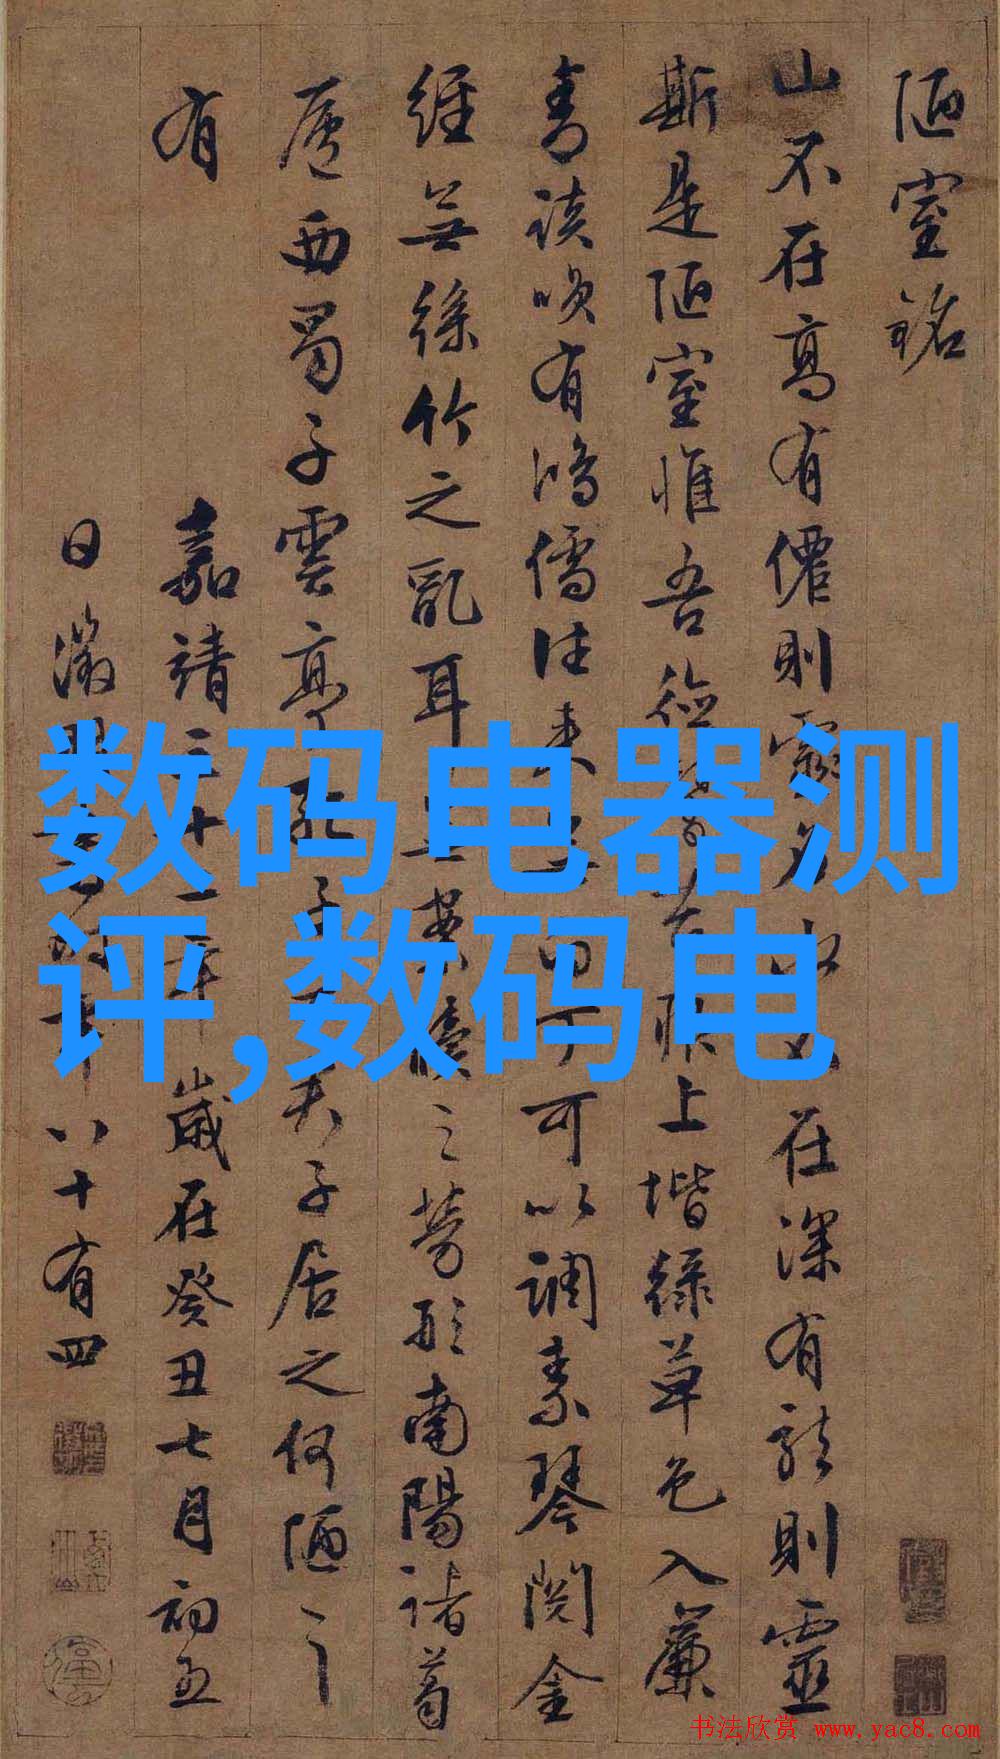 陋室銘
山不在高有僊則靈名水不在深有龍則靈
斯是陋室惟吾德馨苔痕上堦綠草色入簾
青談唉有鴻儒往來無白丁可以調素琴閱金
經無絲竹之亂耳無案牘之勞形南陽諸葛
廬西蜀子雲亭孔子夫子居之何陋之
有
嘉靖三十二年歲在癸丑七月初五
日徵明書時年八十有四
数码电器测
评,数码电
书法欣赏 www.yac8.com